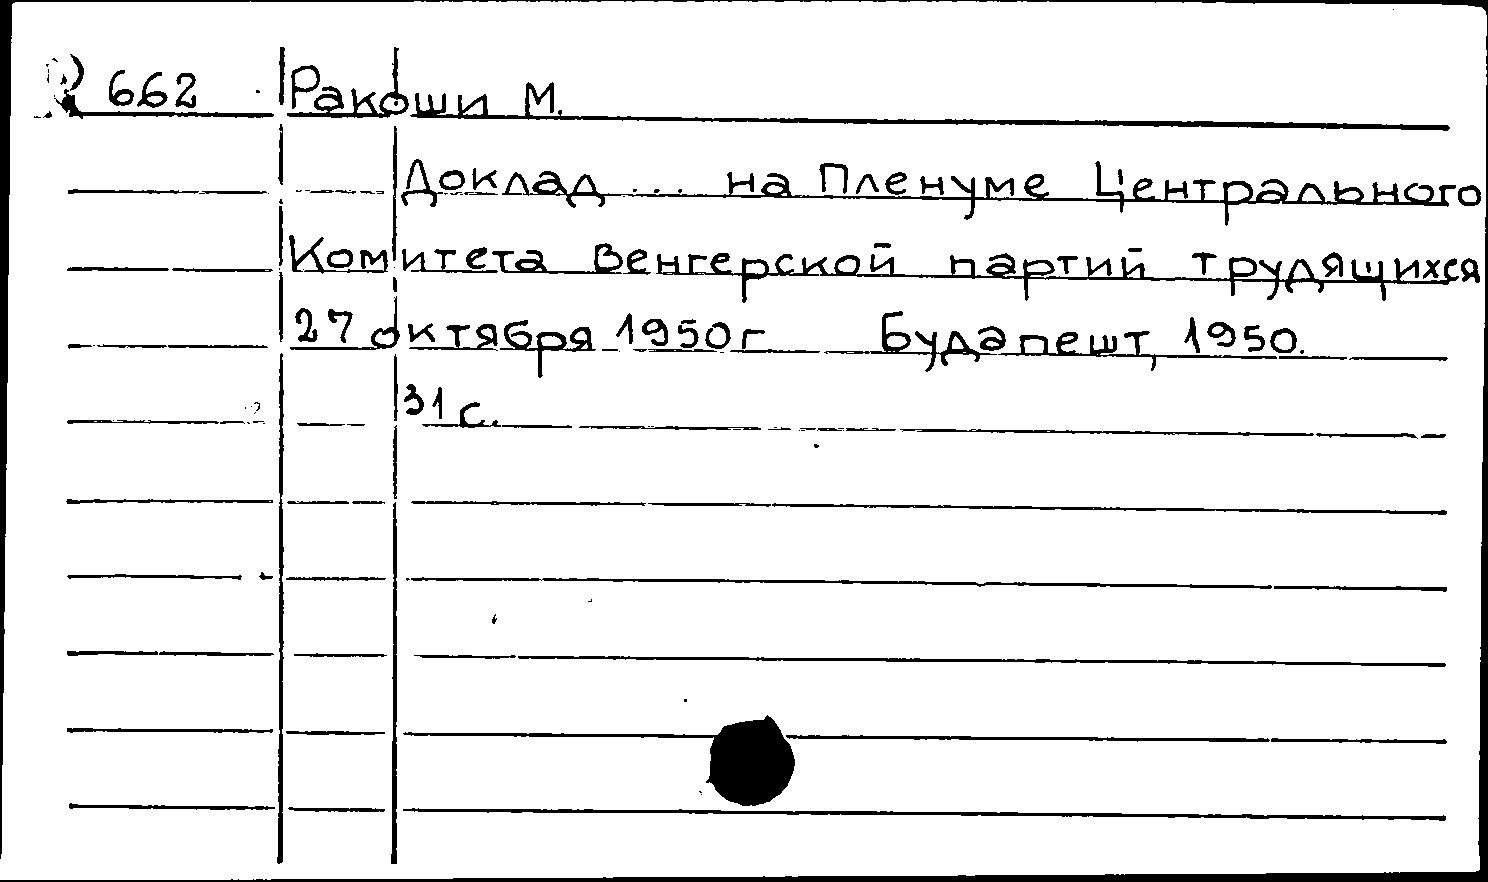 662 Ракоши М.
Доклад ... на Пленуме Центрального
Комитета Венгерской партий трудящихся
27 октября 1950 г Будапешт, 1950.
31 с.